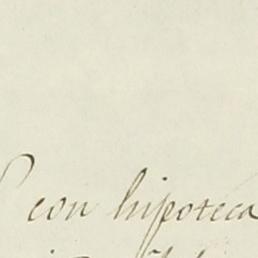 con hipoteca